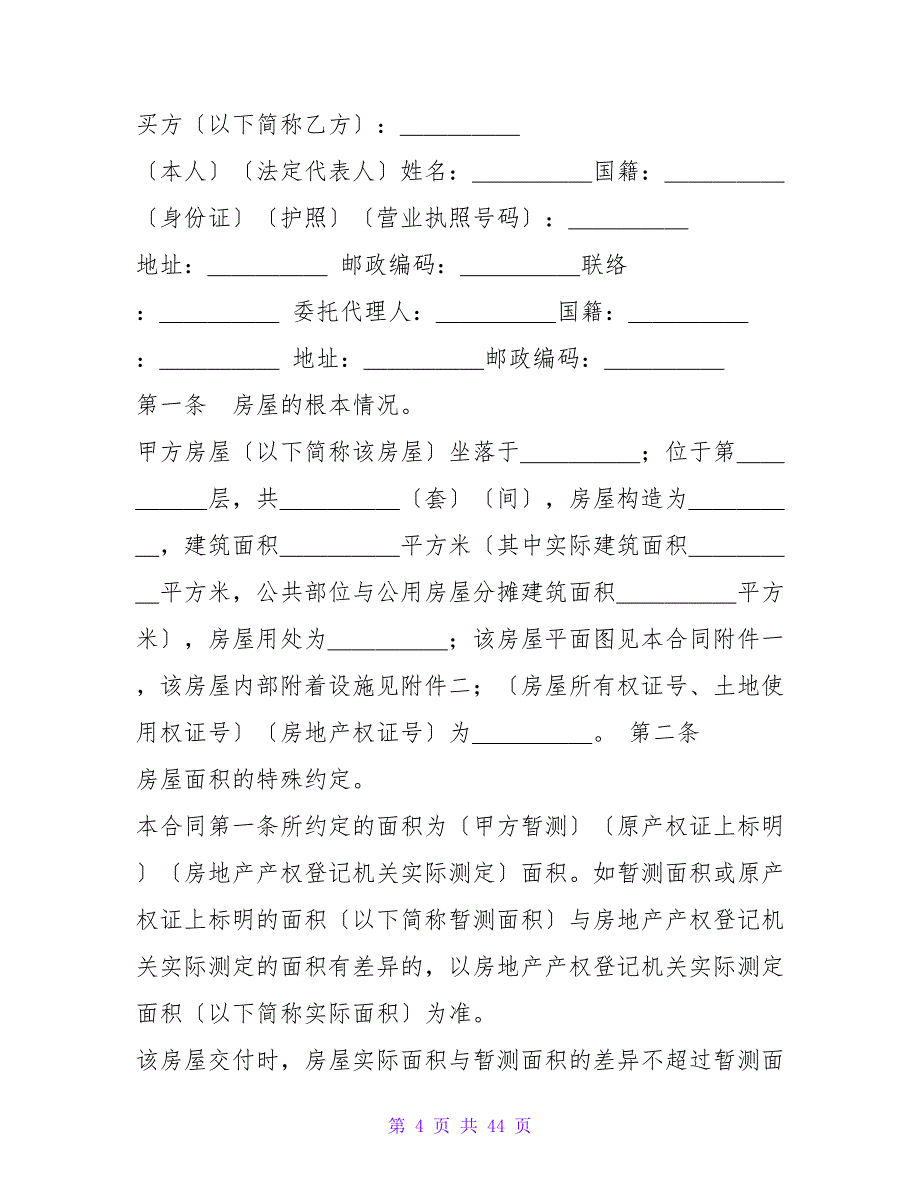 买方〔以下简称乙方〕：__________
〔本人〕〔法定代表人〕姓名：__________国籍：__________
〔身份证〕〔护照〕〔营业执照号码〕：__________
地址：__________ 邮政编码：__________联络
：__________ 委托代理人：__________国籍：__________
：__________ 地址：__________邮政编码：__________
第一条　房屋的根本情况。
甲方房屋〔以下简称该房屋〕坐落于__________；位于第____
______层，共__________〔套〕〔间〕，房屋构造为________
__，建筑面积__________平方米〔其中实际建筑面积________
__平方米，公共部位与公用房屋分摊建筑面积__________平方
米〕，房屋用处为__________；该房屋平面图见本合同附件一
，该房屋内部附着设施见附件二；〔房屋所有权证号、土地使
用权证号〕〔房地产权证号〕为__________。 第二条
房屋面积的特殊约定。
本合同第一条所约定的面积为〔甲方暂测〕〔原产权证上标明
〕〔房地产产权登记机关实际测定〕面积。如暂测面积或原产
权证上标明的面积〔以下简称暂测面积〕与房地产产权登记机
关实际测定的面积有差异的，以房地产产权登记机关实际测定
面积〔以下简称实际面积〕为准。
该房屋交付时，房屋实际面积与暂测面积的差异不超过暂测面
第 4 页 共 44 页